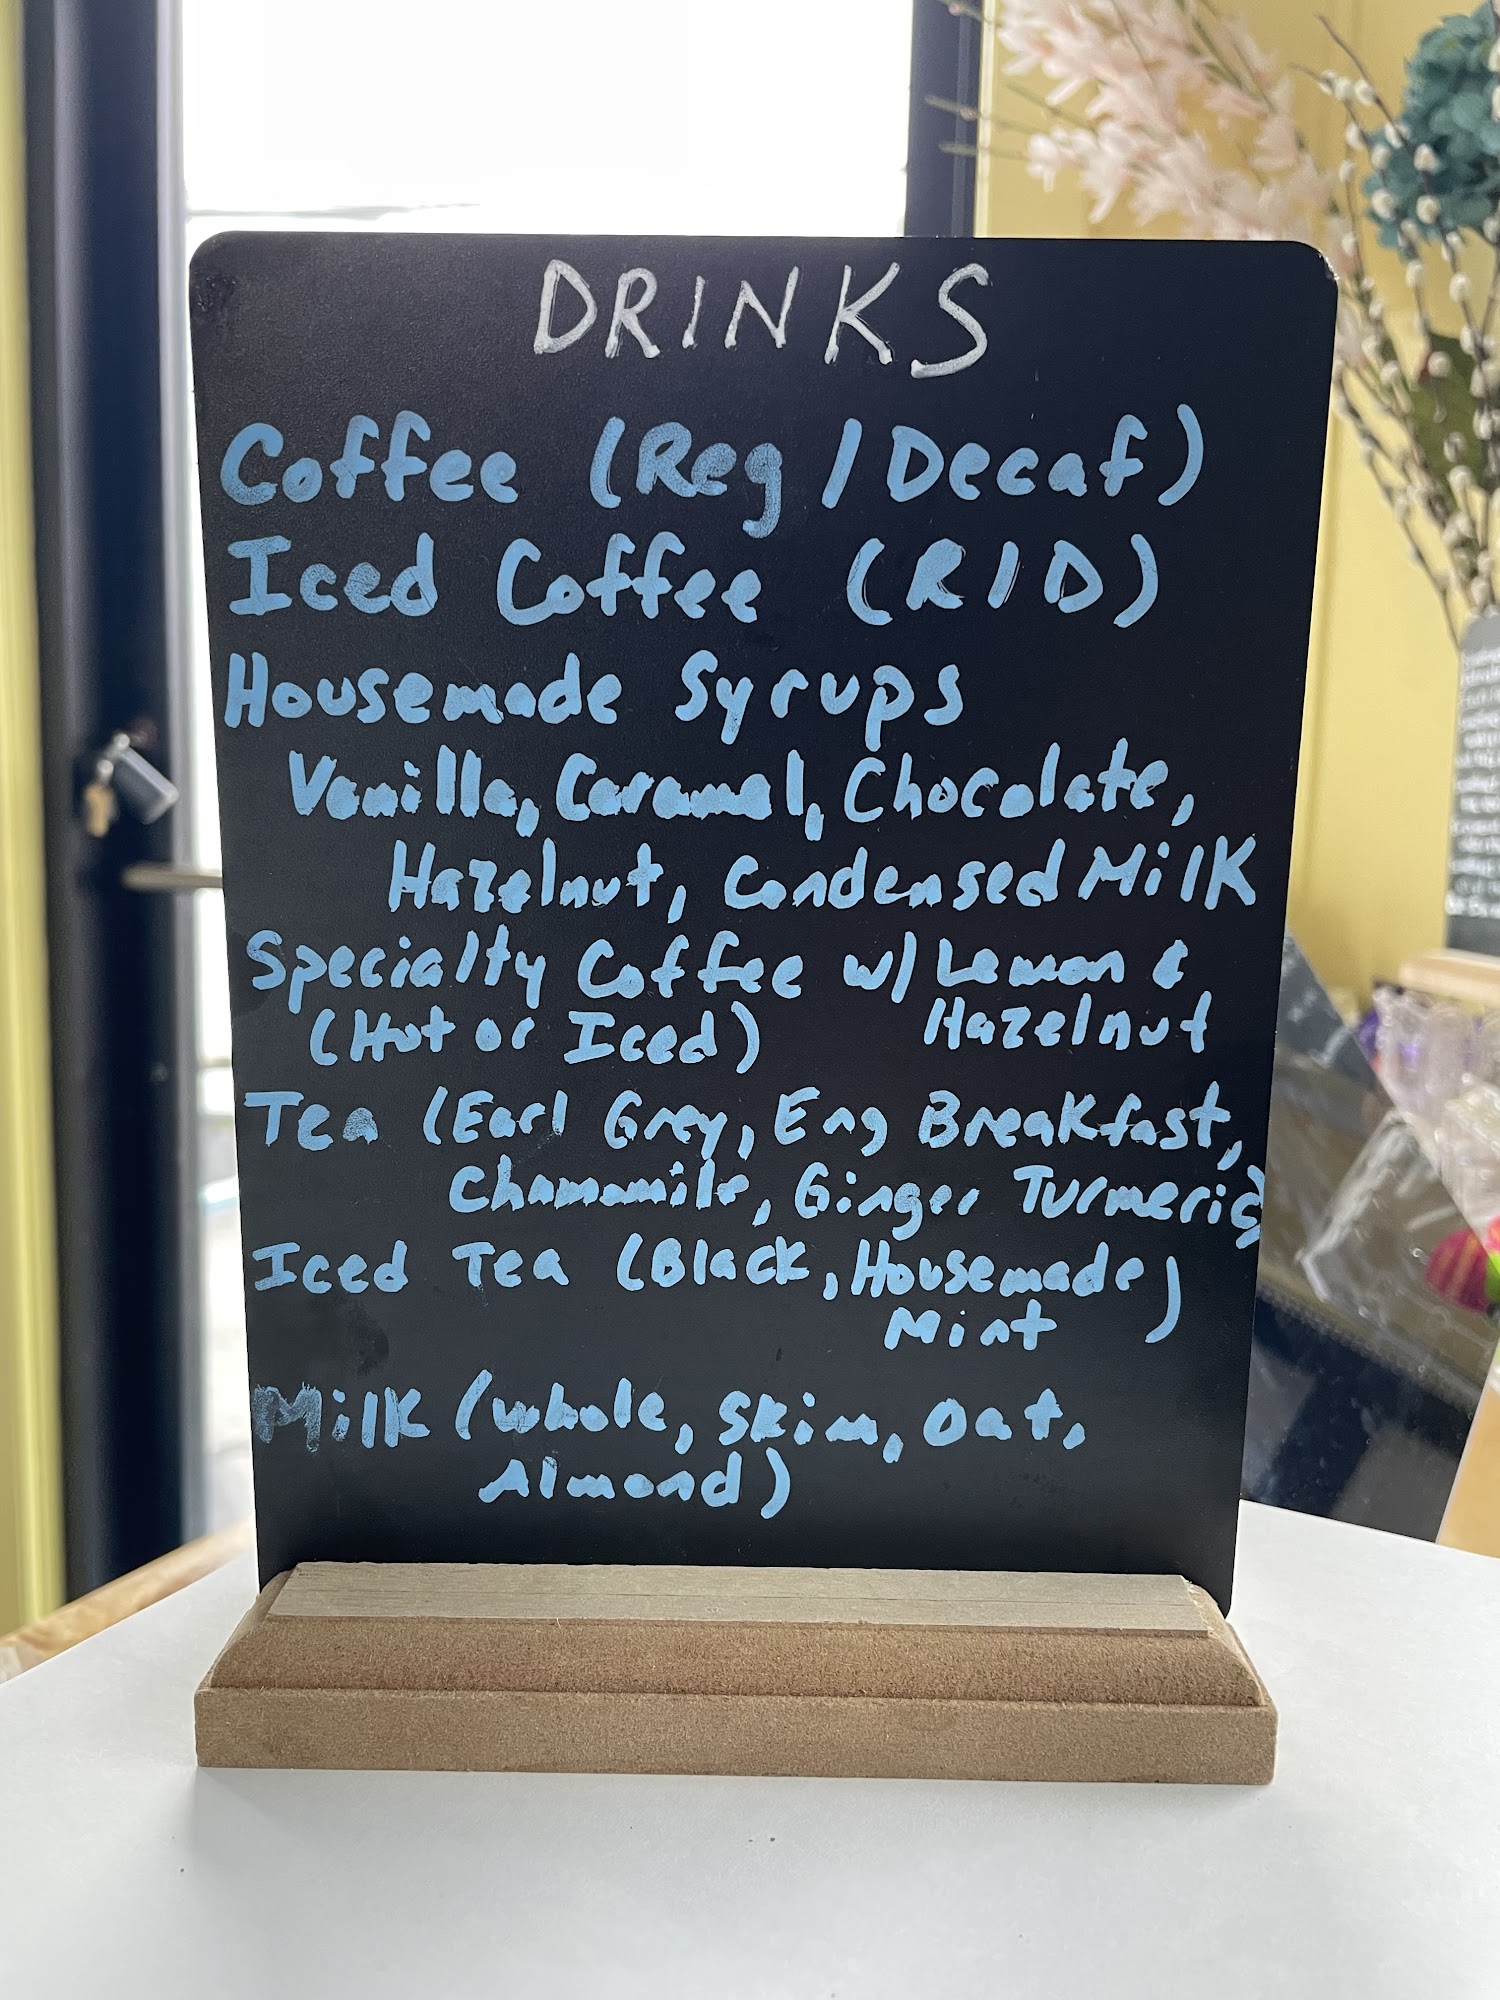 DRINKS
Coffee (Reg / Decaf)
Iced Coffee (R/D)
Housemade Syrups
Vanilla, Caramel, Chocolate,
Hazelnut, Condensed Milk
Specialty Coffee w/ Lemon &
(Hot or Iced) Hazelnut
Tea (Earl Grey, Eng Breakfast,
Chamomile, Ginger Turmeric)
Iced Tea (Black, Housemade)
Mint
Milk (whole, skim, oat,
Almond)